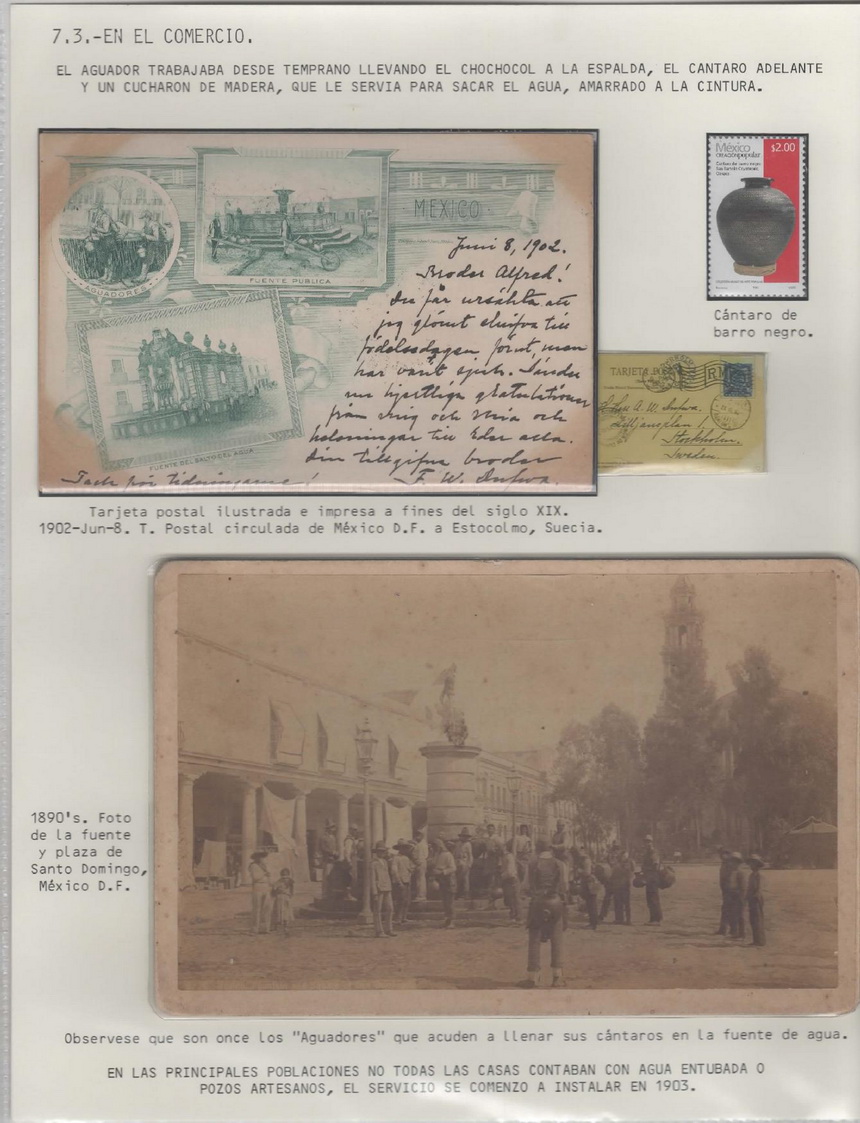 7.3.-EN EL COMERCIO.
EL AGUADOR TRABAJABA DESDE TEMPRANO LLEVANDO EL CHOCHOCOL A LA ESPALDA, EL CANTARO ADELANTE
Y UN CUCHARON DE MADERA, QUE LE SERVIA PARA SACAR EL AGUA, AMARRADO A LA CINTURA.
AGUADORES
FUENTE PUBLICA
MEXICO
FUENTE DEL SALTO DEL AGUA
Juni 8, 1902.
Broder Alfred!
Du får ursäkta att
jag glömt skrifva till
födelsedagen förut, men
har varit sjuk. Sänder
nu hjertliga gratulationer
från mig och Mia och
helsningar till Eder alla.
Din tillgifne broder
F. W.
Tack för tidningarne!
México $2.00
creación popular
Cántaro de
barro negro.
TARJETA
A. W.
Lilljansplan 1
Stockholm.
Sweden.
Tarjeta postal ilustrada e impresa a fines del siglo XIX.
1902-Jun-8. T. Postal circulada de México D.F. a Estocolmo, Suecia.
1890's. Foto
de la fuente
y plaza de
Santo Domingo,
México D.F.
Observese que son once los "Aguadores" que acuden a llenar sus cántaros en la fuente de agua.
EN LAS PRINCIPALES POBLACIONES NO TODAS LAS CASAS CONTABAN CON AGUA ENTUBADA O
POZOS ARTESANOS, EL SERVICIO SE COMENZO A INSTALAR EN 1903.